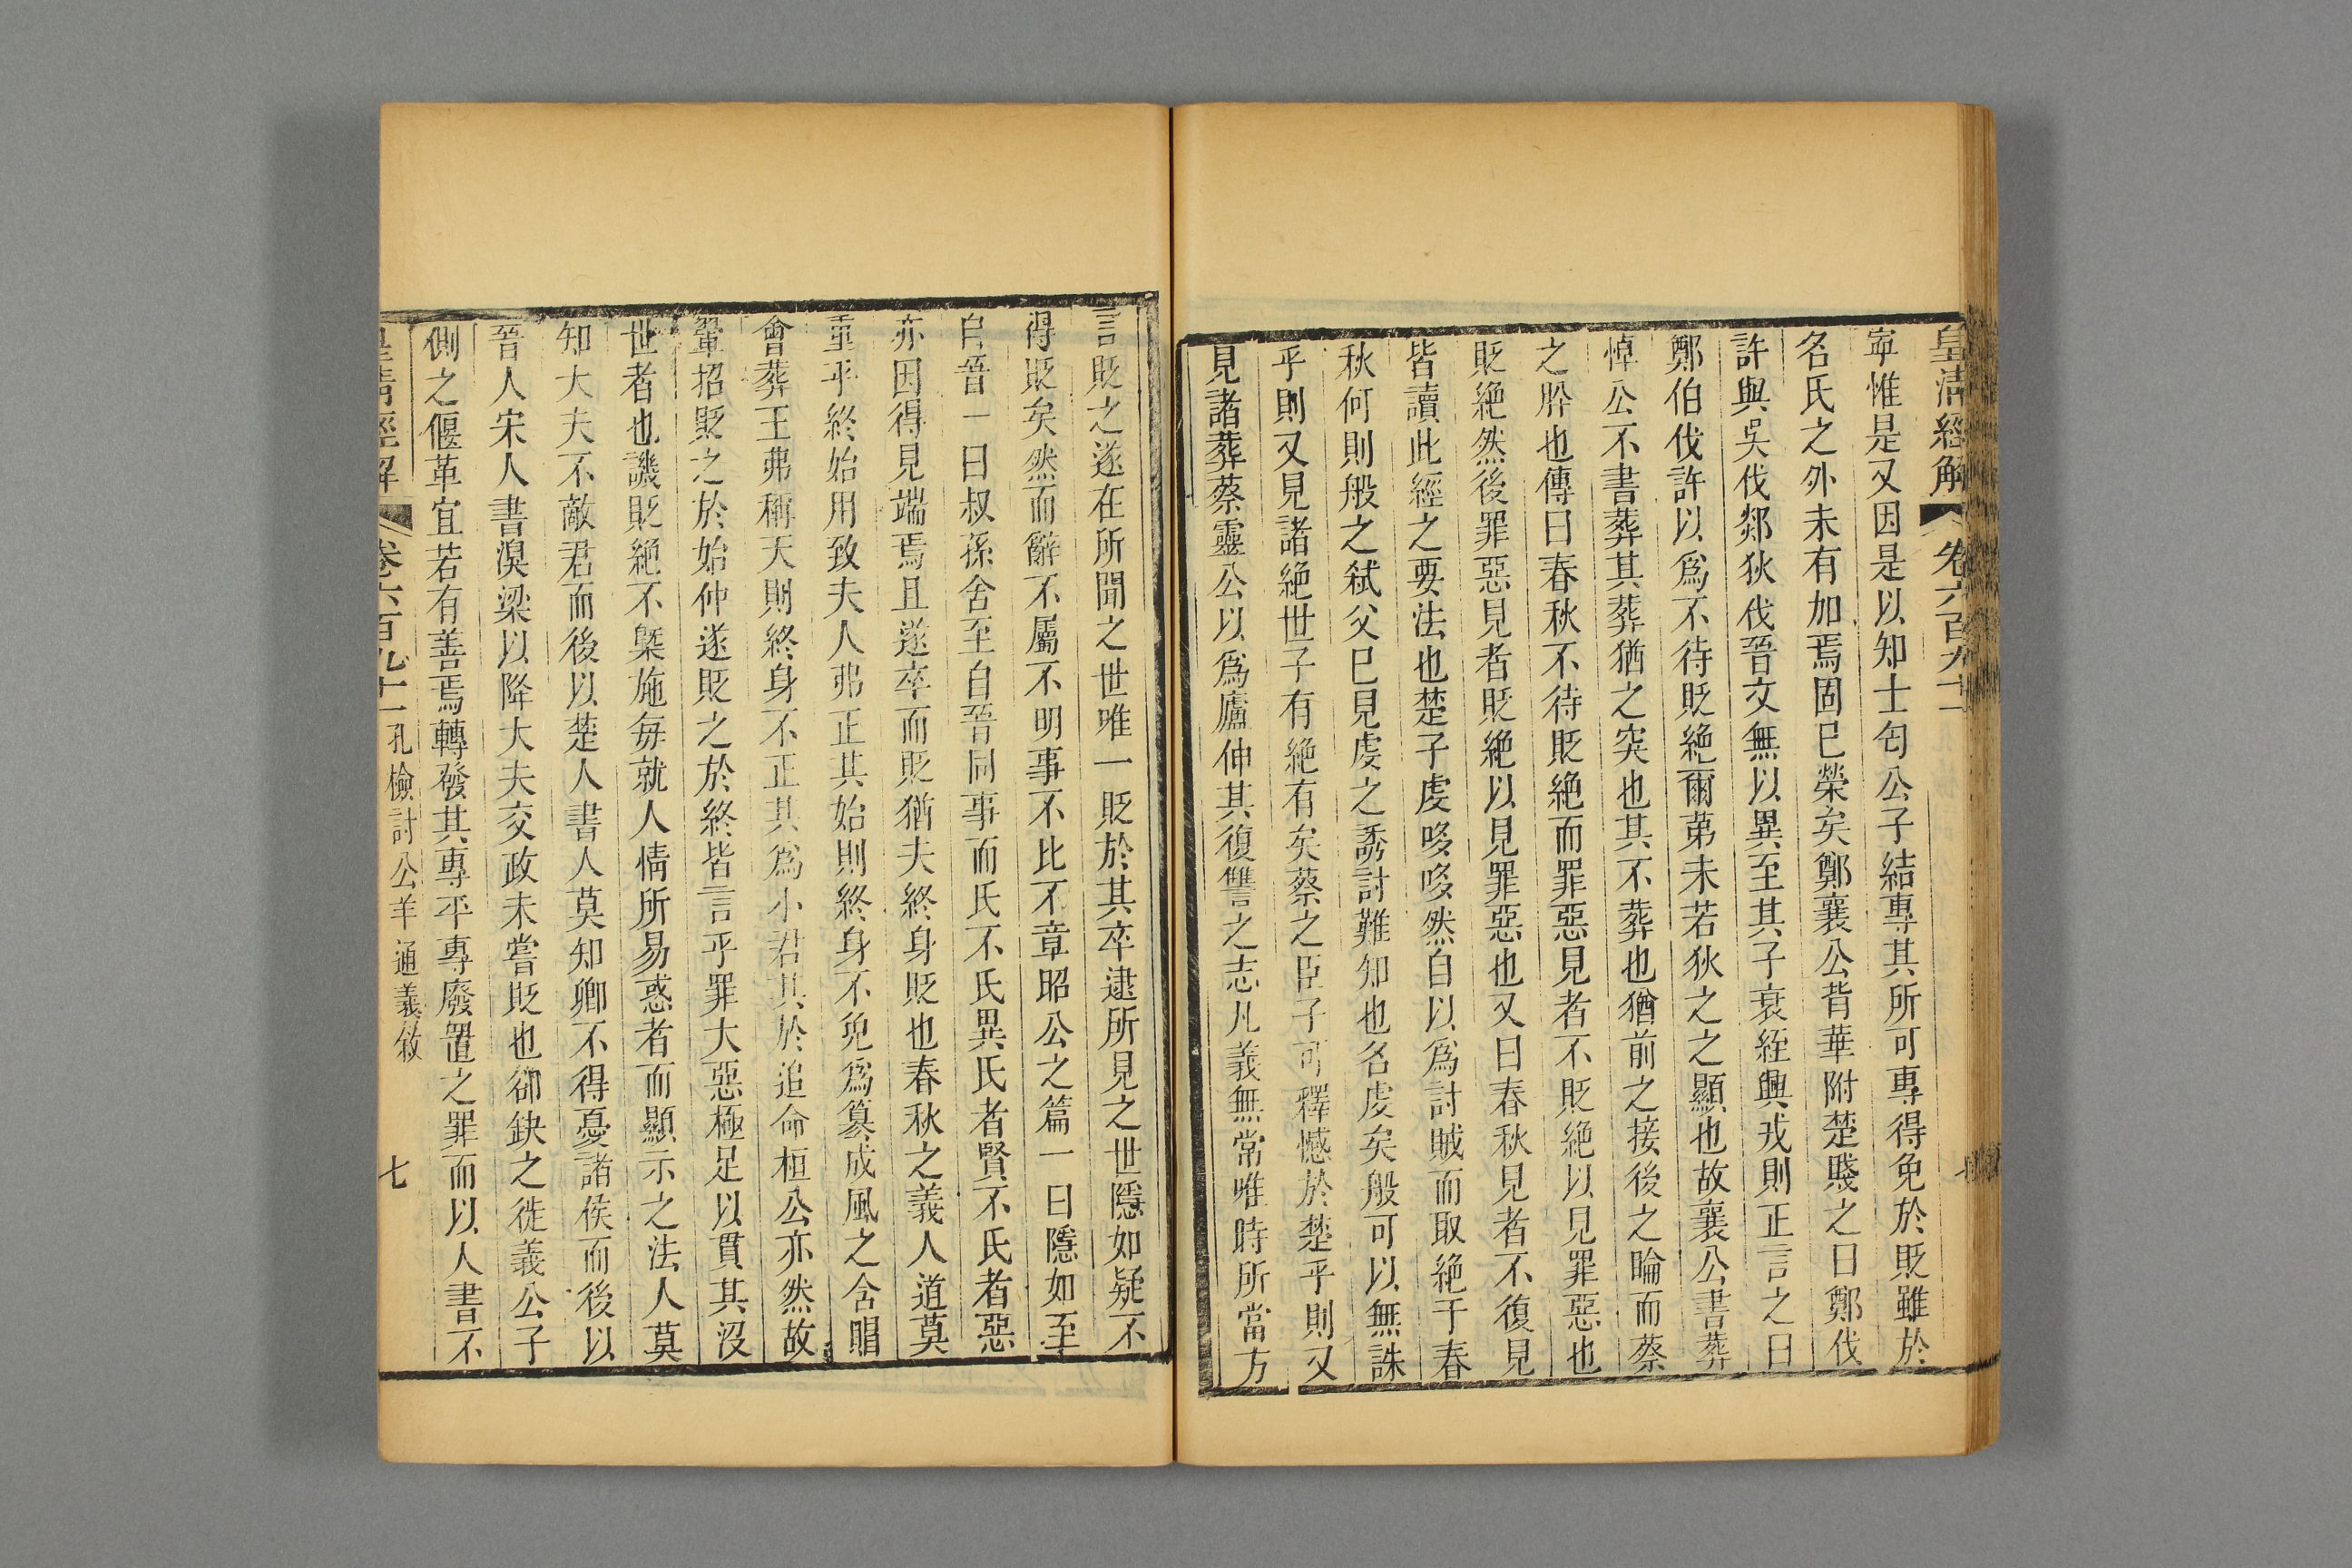 皇清經解 卷六百九十一
寧惟是又因是以知士匄公子結專其所可專得免於貶雖於
名氏之外未有加焉固已榮矣鄭襄公背華附楚賤之曰鄭伐
許與吳伐郯狄伐晉文無以異至其子衰絰興戎則正言之曰
鄭伯伐許以爲不待貶絶爾第未若狄之之顯也故襄公書葬
悼公不書葬其葬猶之突也其不葬也猶前之接後之睔而蔡
之肸也傳曰春秋不待貶絶而罪惡見者不貶絶以見罪惡也
貶絶然後罪惡見者貶絶以見罪惡也又曰春秋見者不復見
皆讀此經之要法也楚子虔哆哆然自以爲討賊而取絶于春
秋何則般之弒父已見虔之誘討難知也名虔矣般可以無誅
乎則又見諸絶世子有絶有矣蔡之臣子可釋憾於楚乎則又
見諸葬蔡靈公以爲廬伸其復讐之志凡義無常唯時所當方
言貶之遂在所聞之世唯一貶於其卒逮所見之世隱如疑不
得貶矣然而辭不屬不明事不比不章昭公之篇一曰隱如至
自晉一曰叔孫舍至自晉同事而氏不氏異氏者賢不氏者惡
亦因得見端焉且遂卒而貶猶夫終身貶也春秋之義人道莫
重乎終始用致夫人弗正其始則終身不免爲篡成風之含賵
會葬王弗稱天則終身不正其爲小君其於追命桓公亦然故
翬招貶之於始仲遂貶之於終皆言乎罪大惡極足以貫其沒
世者也譏貶絶不槩施每就人情所易惑者而顯示之法人莫
知大夫不敵君而後以楚人書人莫知卿不得憂諸侯而後以
晉人宋人書溴梁以降大夫交政未嘗貶也卻缺之徙義公子
側之偃革宜若有善焉轉發其專平專廢置之罪而以人書不
皇清經解 卷六百九十一 孔檢討公羊通義敘 七